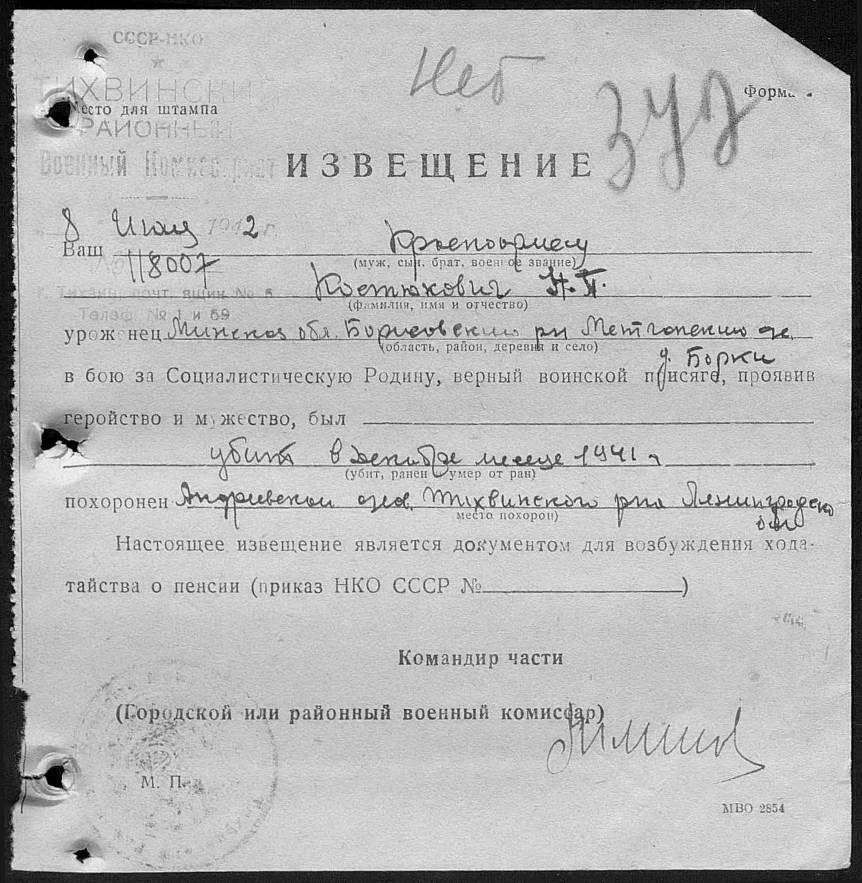 СССР-НКО
Нет
ТИХВИНСКИЙ
Место для штампа
Форма
РАЙОННЫЙ
Военный Комиссариат
ИЗВЕЩЕНИЕ
8 Июля 1942 г.
Ваш Красноармеец
(муж, сын, брат, военное звание)
№ 118007
Костюкович Н.П.
г. Тихвин, почт. ящик № 5
(фамилия, имя и отчество)
Телеф. № 1 и 59
уроженец Минская обл. Борисовский рн
(область, район, деревня и село)
д. Борки
в бою за Социалистическую Родину, верный воинской присяге, проявив
геройство и мужество, был
убит в декабре месяце 1941 г.
(убит, ранен и умер от ран)
похоронен Тихвинского рна Ленинградской
место похорон)
обл
Настоящее извещение является документом для возбуждения хода-
тайства о пенсии (приказ НКО СССР № )
Командир части
(Городской или районный военный комиссар)
М. П.
МВО 2854